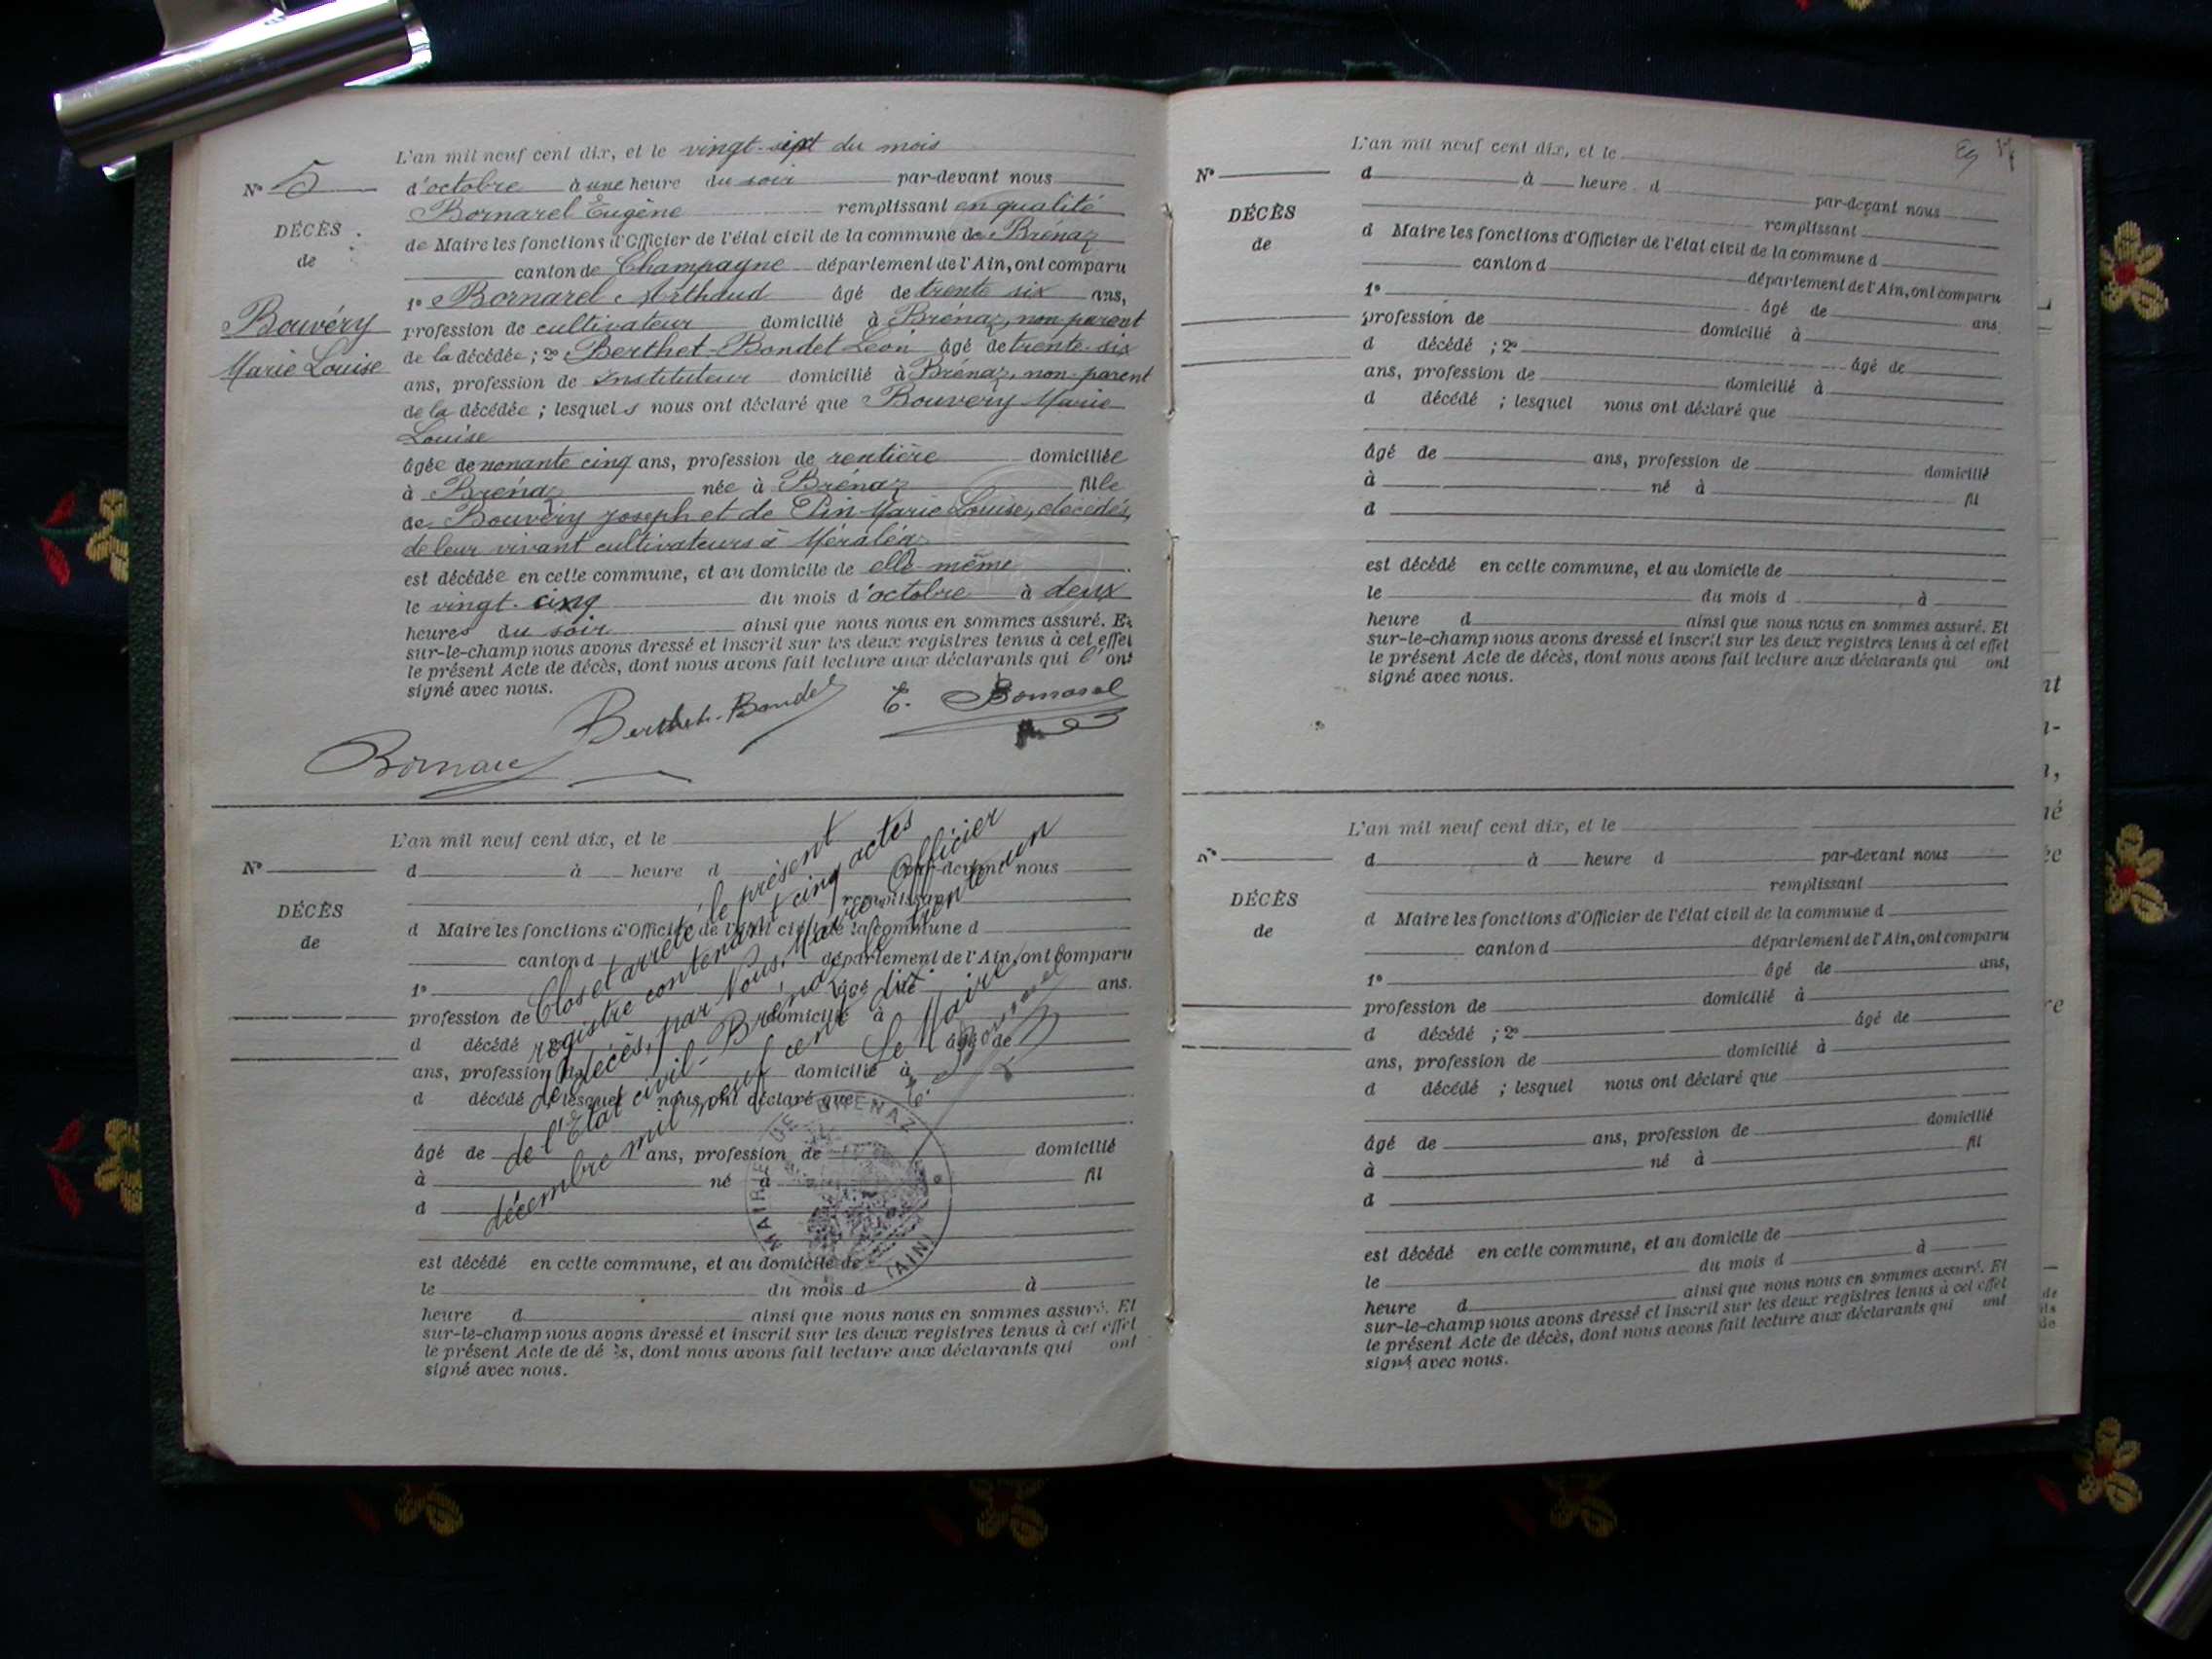 L'an mil neuf cent dix, et le vingt-sept du mois
N° 5 d'octobre à une heure du soir par-devant nous
Bornarel Eugène remplissant en qualité
DÉCÈS
de
de Maire les fonctions d'Officier de l'état civil de la commune de Brénaz
canton de Champagne département de l'Ain, ont comparu
1° Bornarel Arthaud âgé de trente six ans,
Bouvéry
Marie Louise
profession de cultivateur domicilié à Brénaz, non parent
de la décédée ; 2° Berthet-Bondet Léon âgé de trente-six
ans, profession de Instituteur domicilié à Brénaz, non parent
de la décédée ; lesquels nous ont déclaré que Bouvery Marie
Louise
âgée de nonante cinq ans, profession de rentière domiciliée
à Brénaz née à Brénaz fille
de Bouvéry Joseph et de Pin Marie Louise, décédés,
de leur vivant cultivateurs à Méraléaz
est décédée en cette commune, et au domicile de elle-même
le vingt-cinq du mois d'octobre à deux
heures du soir ainsi que nous nous en sommes assuré. Et
sur-le-champ nous avons dressé et inscrit sur les deux registres tenus à cet effet
le présent Acte de décès, dont nous avons fait lecture aux déclarants qui l'ont
signé avec nous.
Berthet-Bondet E. Bornarel
Bornarel
L'an mil neuf cent dix, et le
N° d à heure d par-devant nous
remplissant
DÉCÈS
de
d Maire les fonctions d'Officier de l'état civil de la commune d
canton d département de l'Ain, ont comparu
1° âgé de ans.
profession de domicilié à
d décédé ; 2° âgé de
ans, profession de domicilié à
d décédé ; lesquel nous ont déclaré que
âgé de ans, profession de domicilié
à né à fil
d
est décédé en cette commune, et au domicile de
le du mois d à
heure d ainsi que nous nous en sommes assuré. Et
sur-le-champ nous avons dressé et inscrit sur les deux registres tenus à cet effet
le présent Acte de décès, dont nous avons fait lecture aux déclarants qui ont
signé avec nous.
Clos et arrêté le présent
registre contenant cinq actes
de décès, par Nous, Maire Officier
de l'Etat civil - Brénaz le trente un
décembre mil neuf cent dix.
Le Maire,
E. Bornarel
MAIRIE DE BRÉNAZ
(AIN)
L'an mil neuf cent dix, et le
N° d à heure d par-devant nous
remplissant
DÉCÈS
de
d Maire les fonctions d'Officier de l'état civil de la commune d
canton d département de l'Ain, ont comparu
1° âgé de ans.
profession de domicilié à
d décédé ; 2° âgé de
ans, profession de domicilié à
d décédé ; lesquel nous ont déclaré que
âgé de ans, profession de domicilié
à né à fil
d
est décédé en cette commune, et au domicile de
le du mois d à
heure d ainsi que nous nous en sommes assuré. Et
sur-le-champ nous avons dressé et inscrit sur les deux registres tenus à cet effet
le présent Acte de décès, dont nous avons fait lecture aux déclarants qui ont
signé avec nous.
L'an mil neuf cent dix, et le
N° d à heure d par-devant nous
remplissant
DÉCÈS
de
d Maire les fonctions d'Officier de l'état civil de la commune d
canton d département de l'Ain, ont comparu
1° âgé de ans,
profession de domicilié à
d décédé ; 2° âgé de
ans, profession de domicilié à
d décédé ; lesquel nous ont déclaré que
âgé de ans, profession de domicilié
à né à fil
d
est décédé en cette commune, et au domicile de
le du mois d à
heure d ainsi que nous nous en sommes assuré. Et
sur-le-champ nous avons dressé et inscrit sur les deux registres tenus à cet effet
le présent Acte de décès, dont nous avons fait lecture aux déclarants qui ont
signé avec nous.